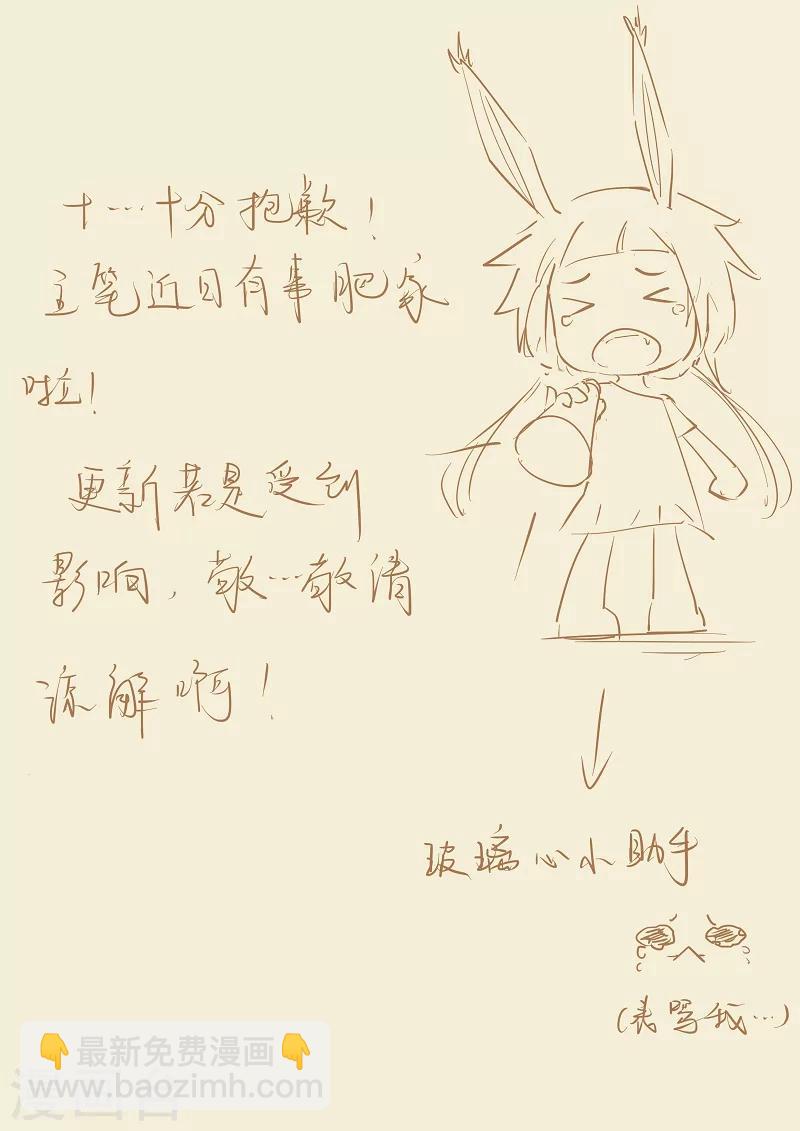 十…十分抱歉!
主笔近日有事肥家
啦!
更新若是受到
影响,敬…敬请
谅解啊!
玻璃心小助手
(表骂我…)
👇最新免费漫画👇
www.baozimh.com
漫画台